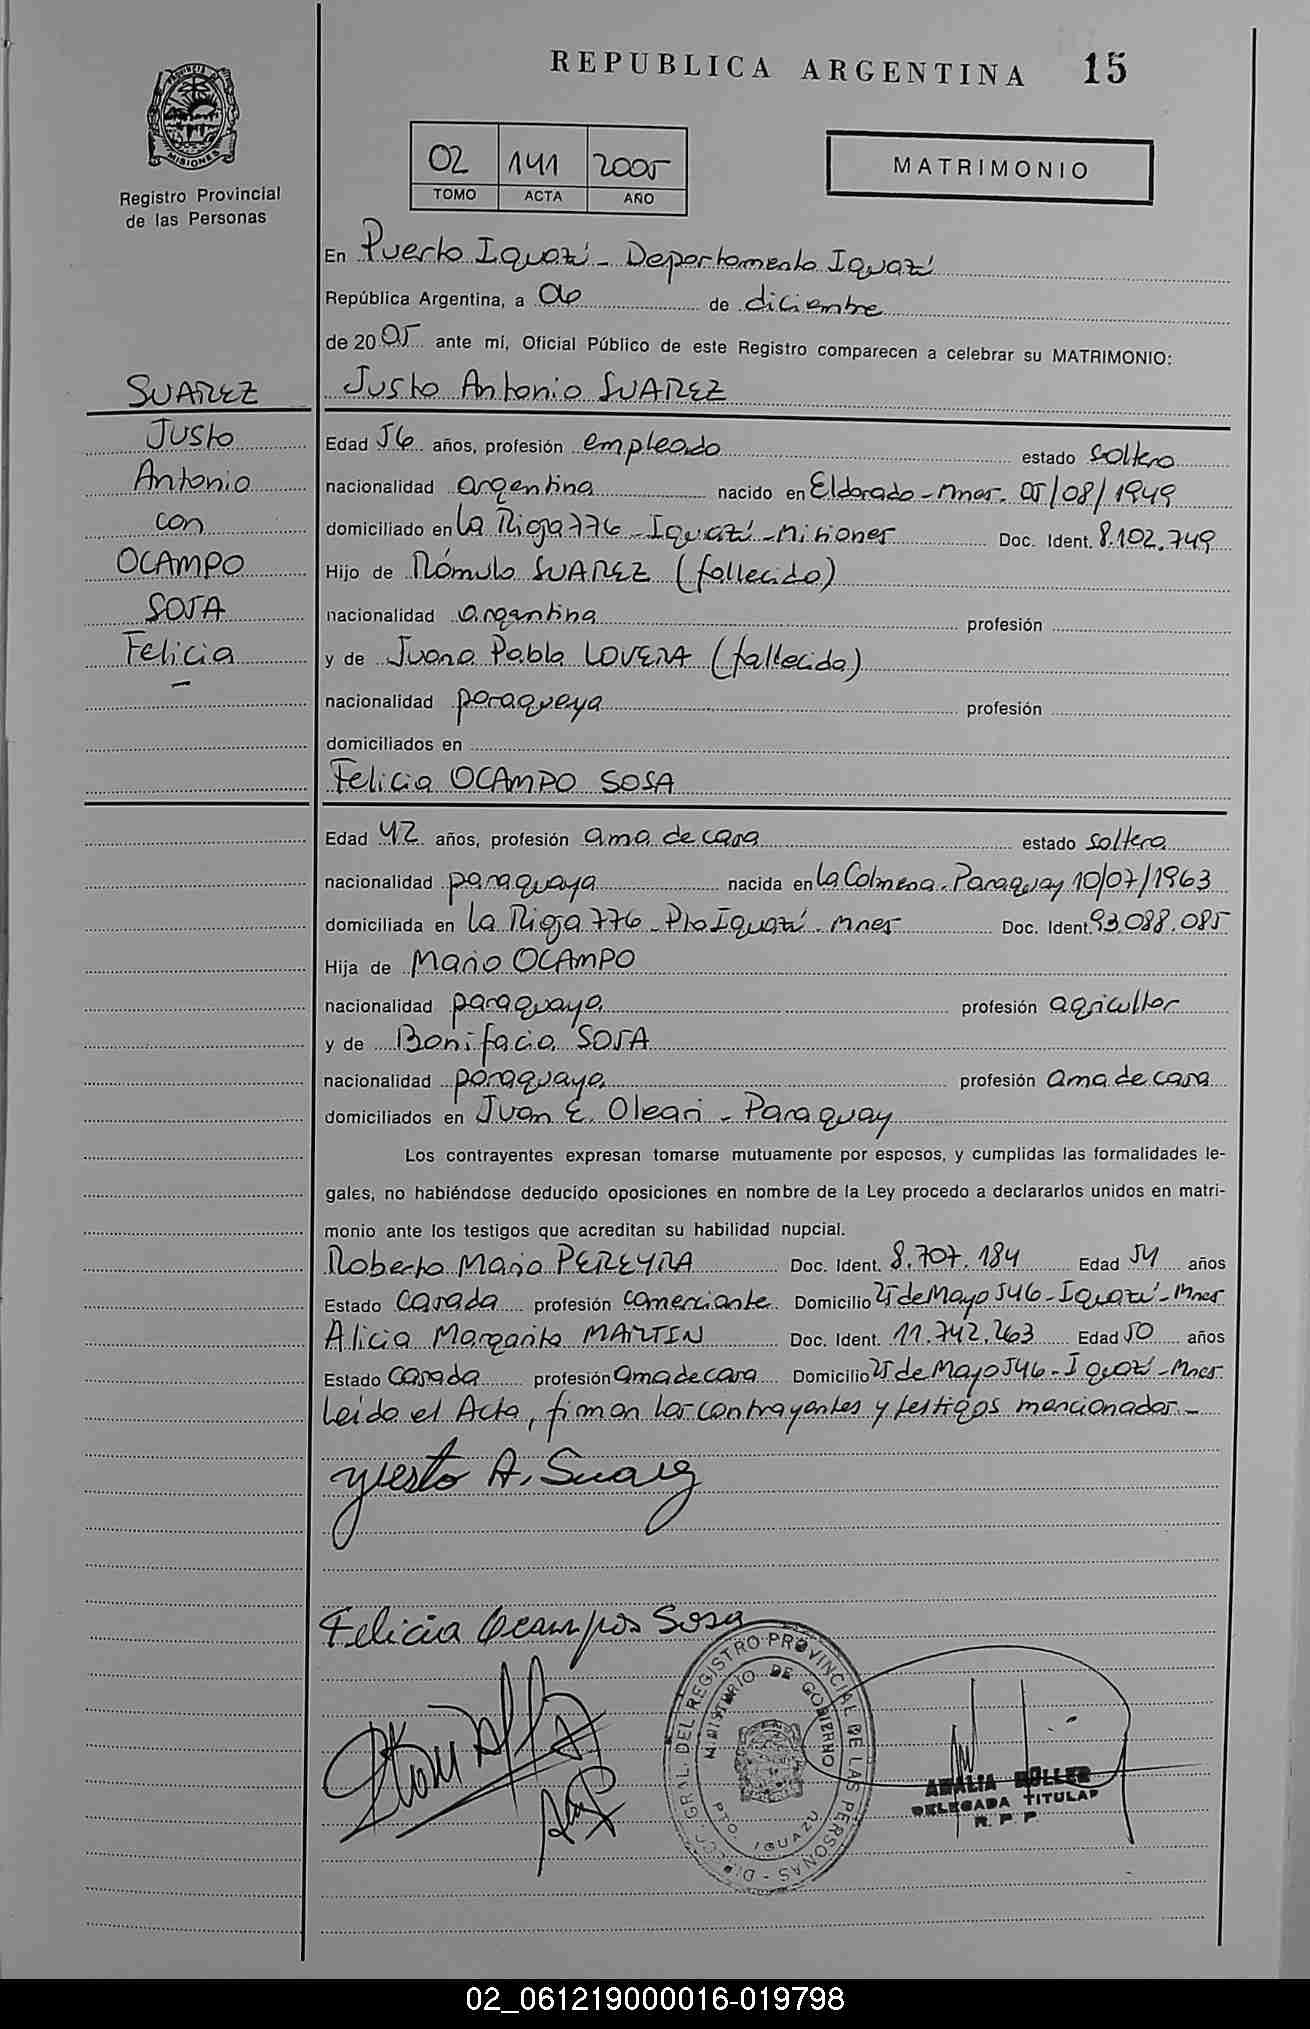 REPUBLICA ARGENTINA 15
MISIONES
Registro Provincial
de las Personas
02 141 2005
TOMO ACTA AÑO
MATRIMONIO
En Puerto Iguazú - Departamento Iguazú
República Argentina, a 06 de diciembre
de 2005 ante mí, Oficial Público de este Registro comparecen a celebrar su MATRIMONIO:
SUAREZ
Justo
Antonio
con
OCAMPO
SOSA
Felicia
-
Justo Antonio SUAREZ
Edad 56 años, profesión empleado estado soltero
nacionalidad argentina nacido en Eldorado - Mnes. 05/08/1949
domiciliado en La Rioja 776 - Iguazú - Misiones Doc. Ident. 8.102.749
Hijo de Rómulo SUAREZ (fallecido)
nacionalidad argentina profesión
y de Juana Pabla LOVERA (fallecida)
nacionalidad paraguaya profesión
domiciliados en
Felicia OCAMPO SOSA
Edad 42 años, profesión ama de casa estado soltera
nacionalidad paraguaya nacida en La Colmena - Paraguay 10/07/1963
domiciliada en La Rioja 776 - Pto Iguazú - Mnes Doc. Ident. 93.088.085
Hija de Mario OCAMPO
nacionalidad paraguaya profesión agricultor
y de Bonifacia SOSA
nacionalidad paraguaya profesión ama de casa
domiciliados en Juan E. Oleari - Paraguay
Los contrayentes expresan tomarse mutuamente por esposos, y cumplidas las formalidades le-
gales, no habiéndose deducido oposiciones en nombre de la Ley procedo a declararlos unidos en matri-
monio ante los testigos que acreditan su habilidad nupcial.
Roberto Mario PEREYRA Doc. Ident. 8.707.184 Edad 54 años
Estado casada profesión comerciante Domicilio 25 de Mayo 546 - Iguazú - Mnes
Alicia Margarita MARTIN Doc. Ident. 11.742.263 Edad 50 años
Estado casada profesión ama de casa Domicilio 25 de Mayo 546 - Iguazú - Mnes.
Leído el Acta, firman los contrayentes y testigos mencionados.-
Justo A. Suarez
Felicia Ocampos Sosa
DIRECC. GRAL. DEL REGISTRO PROVINCIAL DE LAS PERSONAS
MINISTERIO DE GOBIERNO
PTO. IGUAZU
AMALIA MULLER
DELEGADA TITULAR
R. P. P.
02_061219000016-019798